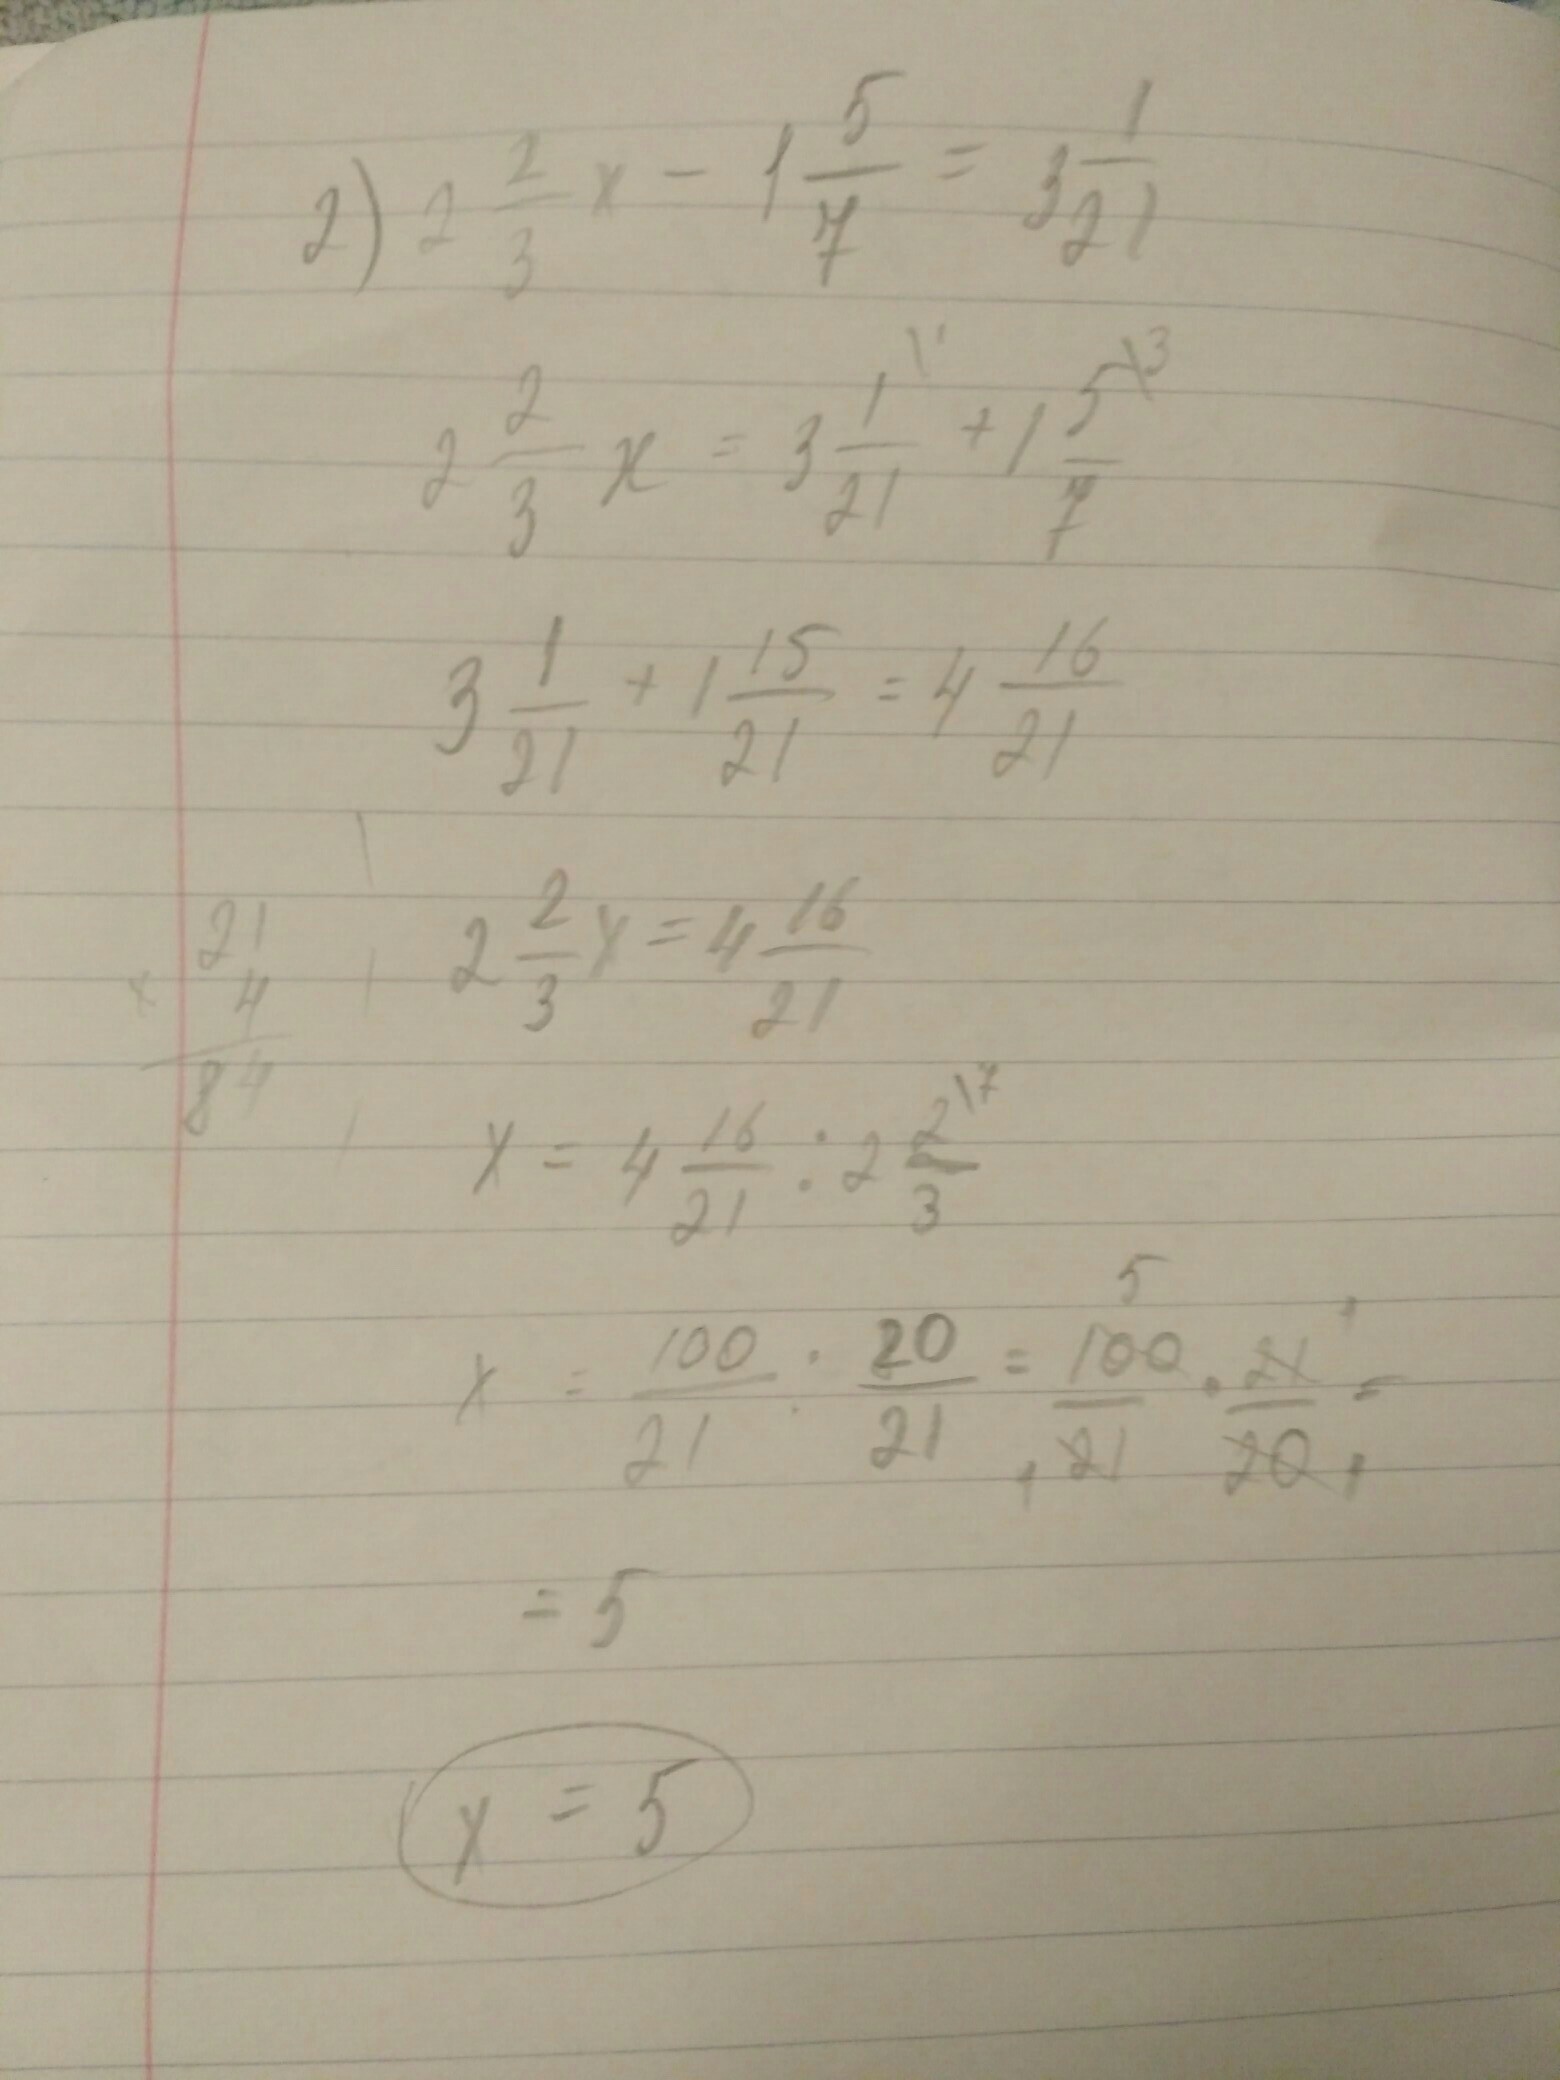 2) 2 2/3 x - 1 5/7 = 3 1/21
2 2/3 x = 3 1\1/21 + 1 5\3/7
3 1/21 + 1 15/21 = 4 16/21
2 2/3 x = 4 16/21
21
x 4
84
x = 4 16/21 : 2 2\7/3
x = 100/21 : 20/21 = 100/21 · 21/20 =
5 1
1 1
= 5
x = 5